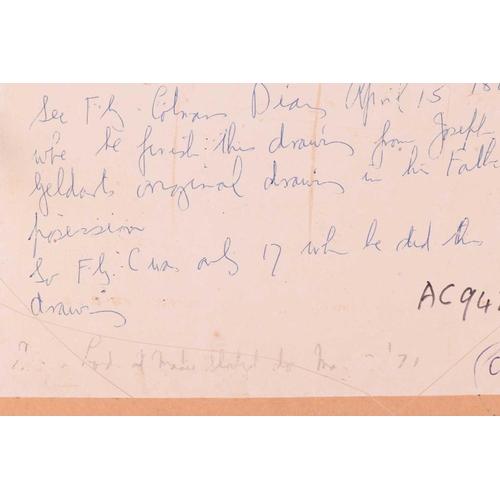 See F.G. Cotman Diary April 15 18
whe he finish this drawing from Joseph
Geldarts original drawing in his Fath
posession
So F.G. C was only 17 whe he did this
drawing
AC94